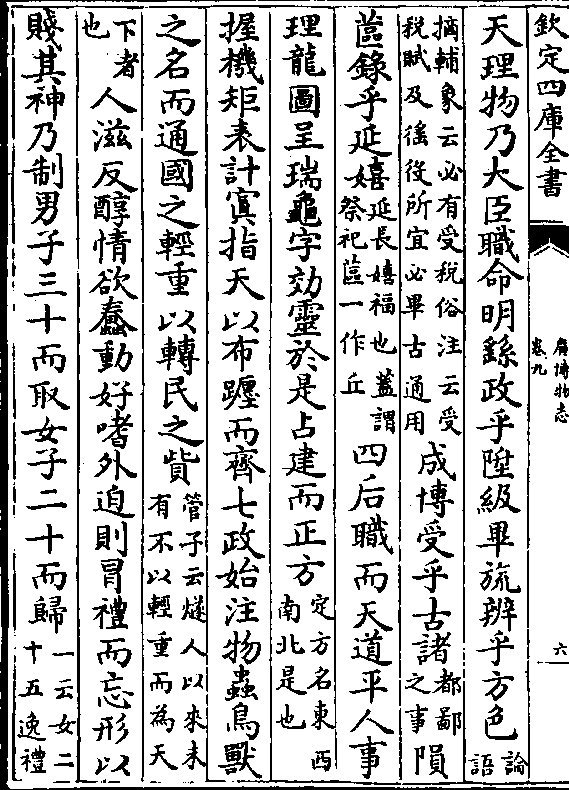 欽定四庫全書
廣博物志
卷九
六
天理物乃大臣職命明繇政乎陞級畢旒辨乎方色論語
摘輔象云必有受税俗注云受税賦及徭役所宜必畢古通用成博受乎古諸都鄙之事隕
蓲錄乎延嬉延長嬉福也蓋謂祭祀蓲一作丘四后職而天道平人事
理龍圖呈瑞龜字効靈於是占建而正方定方名東西南北是也
握機矩表計寘指天以布躔而齊七政始注物蟲鳥獸
之名而通國之輕重以轉民之貲管子云燧人以來未有不以輕重而為天
下者也人滋反醇情欲蠢動好嗜外迫則冒禮而忘形以
賤其神乃制男子三十而取女子二十而歸一云女二十五逸禮